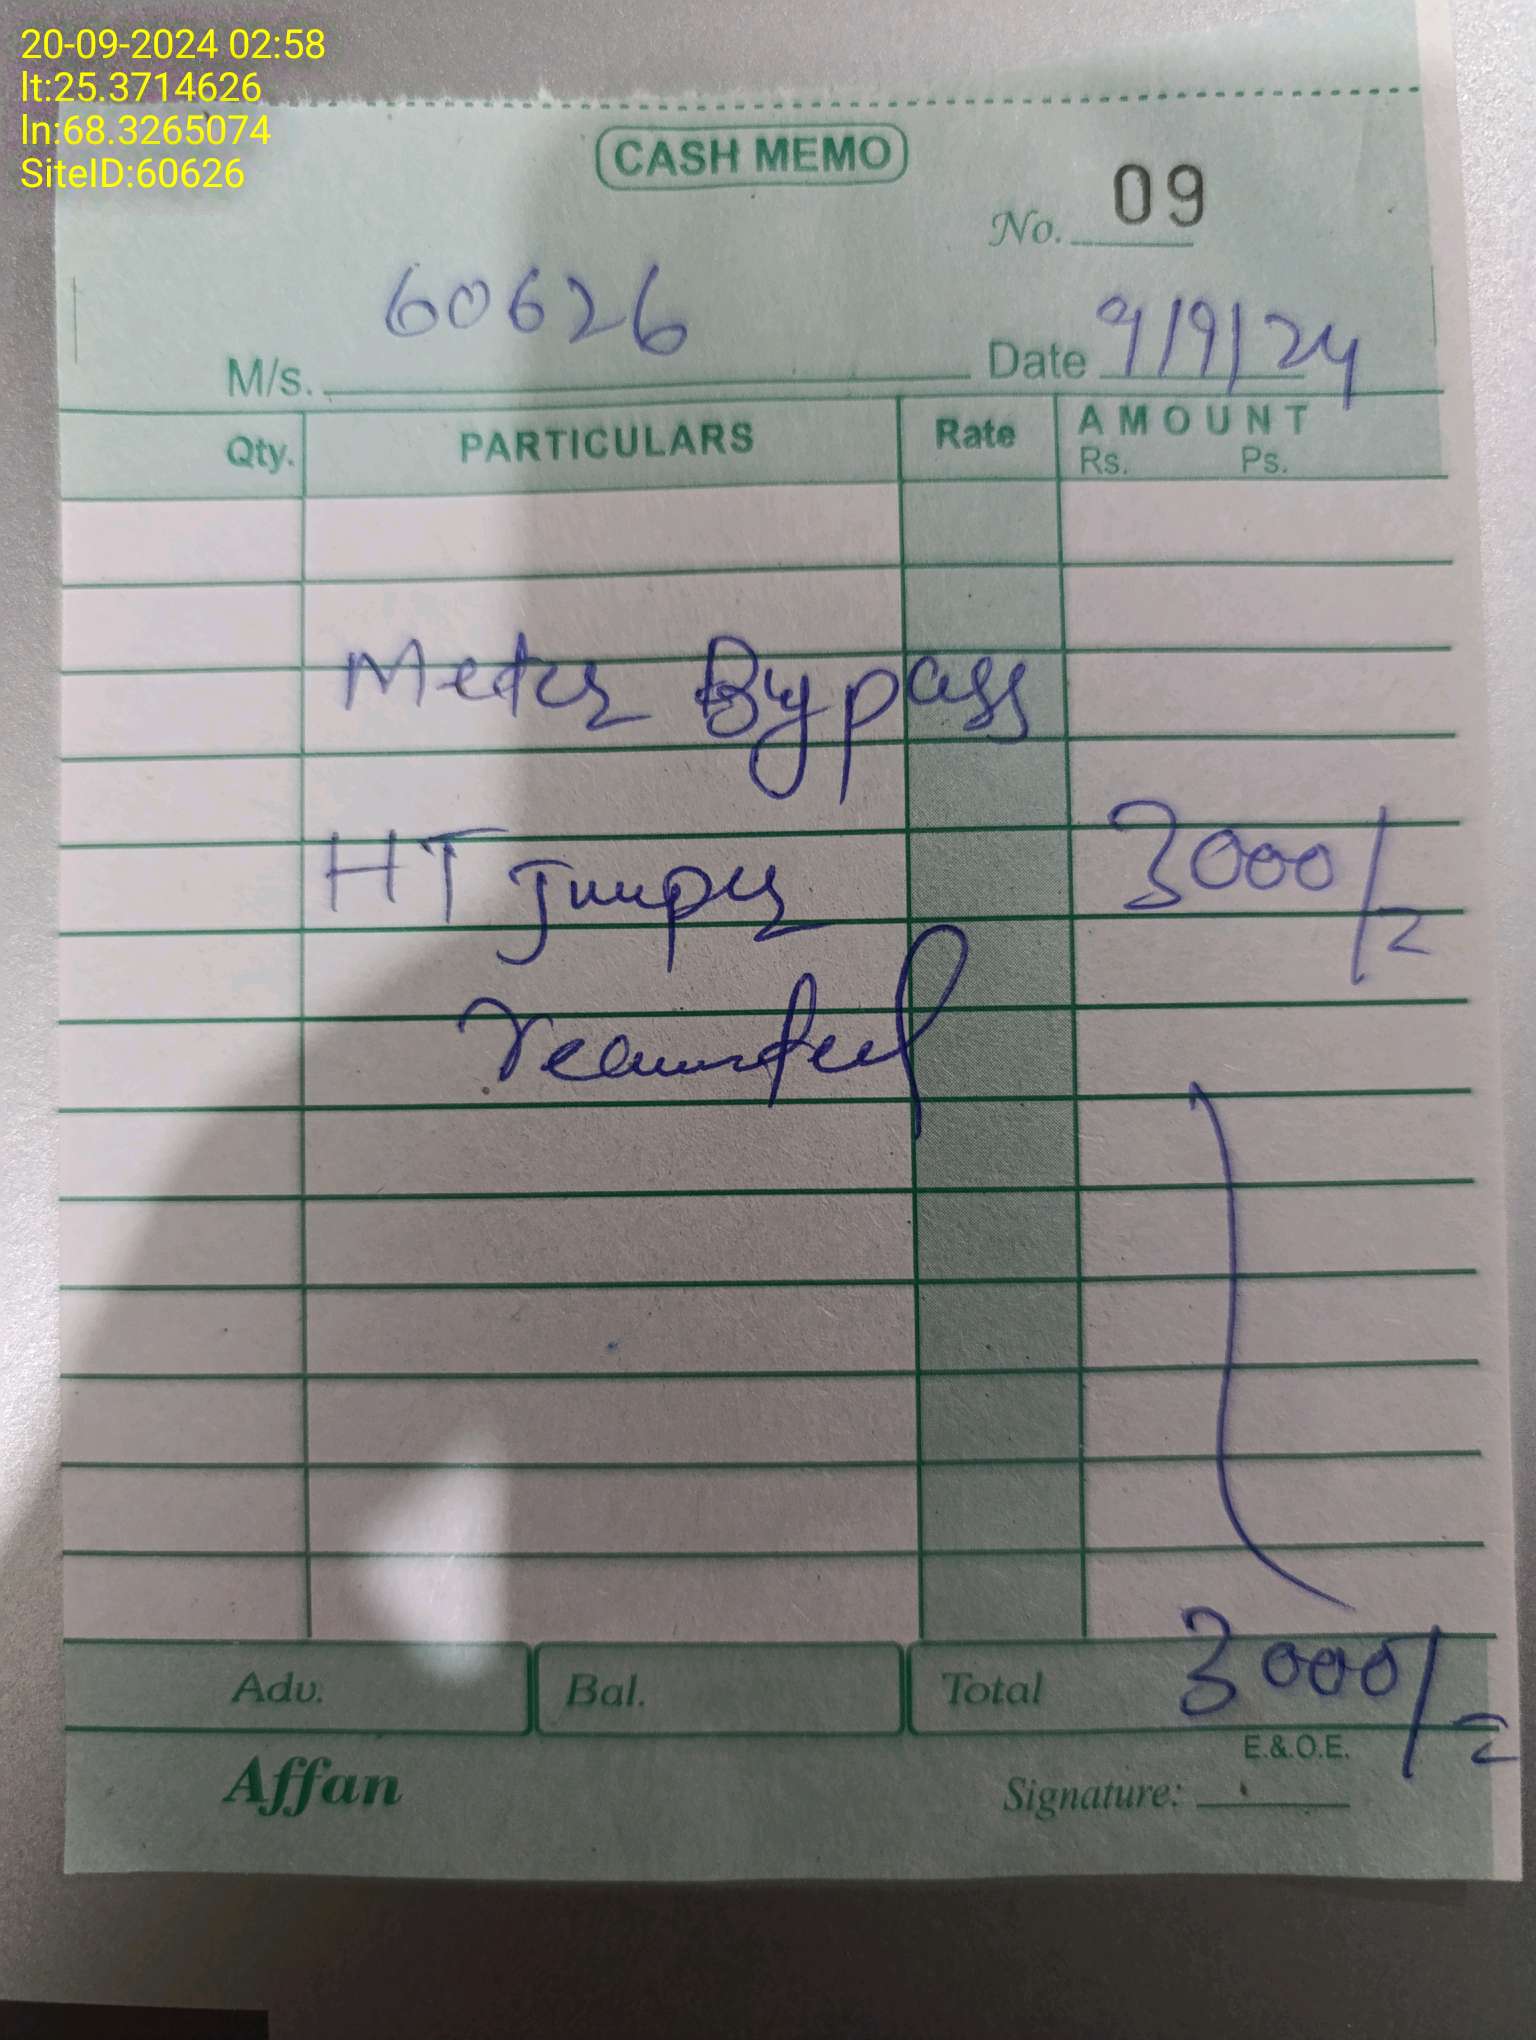 20-09-2024 02:58
lt:25.3714626
ln:68.3265074
SiteID:60626
CASH MEMO
No. 09
M/s. 60626 Date 9/9/24
Qty. PARTICULARS Rate AMOUNT
Rs. Ps.
Meter Bypass
HT Jumper 3000/=
Adv. Bal. Total 3000/=
E.&.O.E.
Affan Signature: